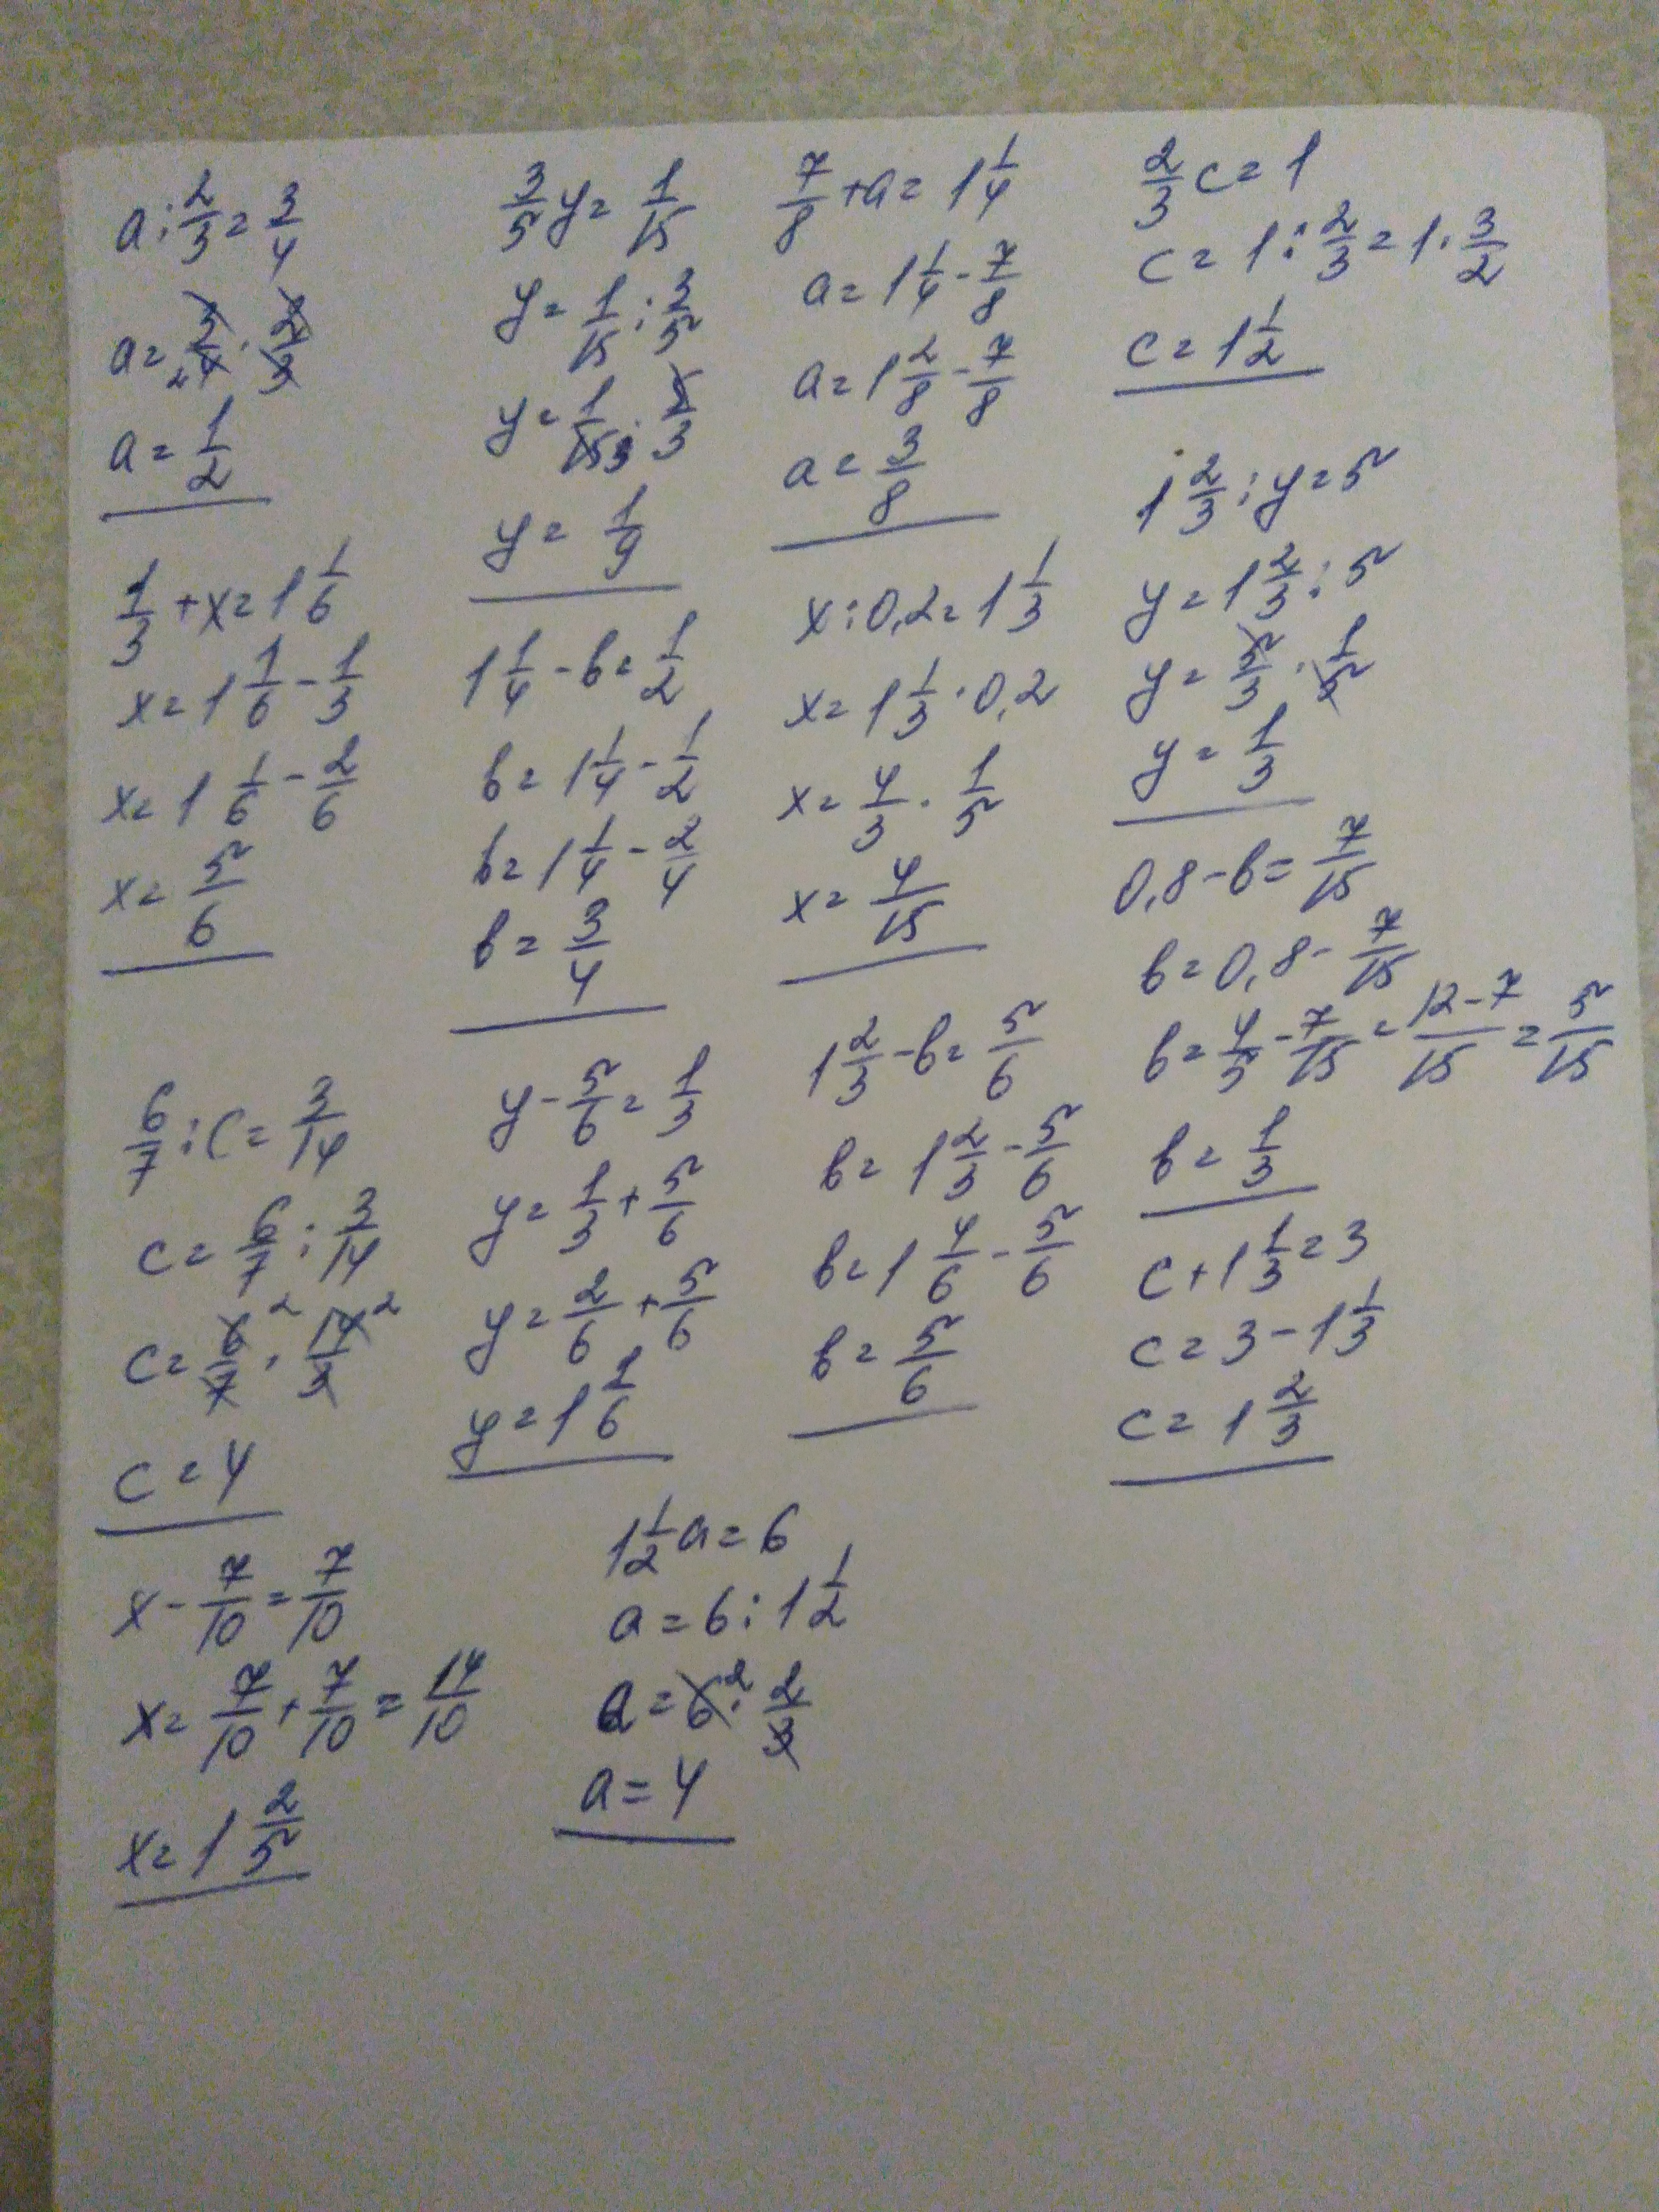 a : 2/3 = 3/4
a = 3/4 · 2/3
a = 1/2
1/3 + x = 1 1/6
x = 1 1/6 - 1/3
x = 1 1/6 - 2/6
x = 5/6
6/7 : c = 3/14
c = 6/7 : 3/14
c = 6/7 2 · 14/3 2
c = 4
x - 7/10 = 7/10
x = 7/10 + 7/10 = 14/10
x = 1 2/5
3/5 y = 1/15
y = 1/15 : 3/5
y = 1/15 3 · 5/3
y = 1/9
1 1/4 - b = 1/2
b = 1 1/4 - 1/2
b = 1 1/4 - 2/4
b = 3/4
y - 5/6 = 1/3
y = 1/3 + 5/6
y = 2/6 + 5/6
y = 1 1/6
1 1/2 a = 6
a = 6 : 1 1/2
a = 6 2 · 2/3
a = 4
7/8 + a = 1 1/4
a = 1 1/4 - 7/8
a = 1 2/8 - 7/8
a = 3/8
x : 0,2 = 1 1/3
x = 1 1/3 · 0,2
x = 4/3 · 1/5
x = 4/15
1 2/3 - b = 5/6
b = 1 2/3 - 5/6
b = 1 4/6 - 5/6
b = 5/6
2/3 c = 1
c = 1 : 2/3 = 1 · 3/2
c = 1 1/2
1 2/3 : y = 5
y = 1 2/3 : 5
y = 5/3 · 1/5
y = 1/3
0,8 - b = 7/15
b = 0,8 - 7/15
b = 4/5 - 7/15 = 12-7/15 = 5/15
b = 1/3
c + 1 1/3 = 3
c = 3 - 1 1/3
c = 1 2/3